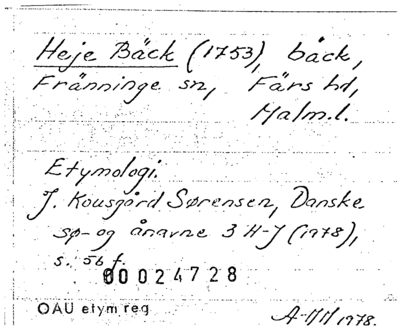 Heje Bäck (1753), bäck,
Fränninge sn, Färs hd,
Malm.l.
Etymologi.
J. Kousgård Sørensen, Danske
sø- og ånavne 3 H-J (1978),
s. 56 f.
00024728
OAU etym reg
1978.